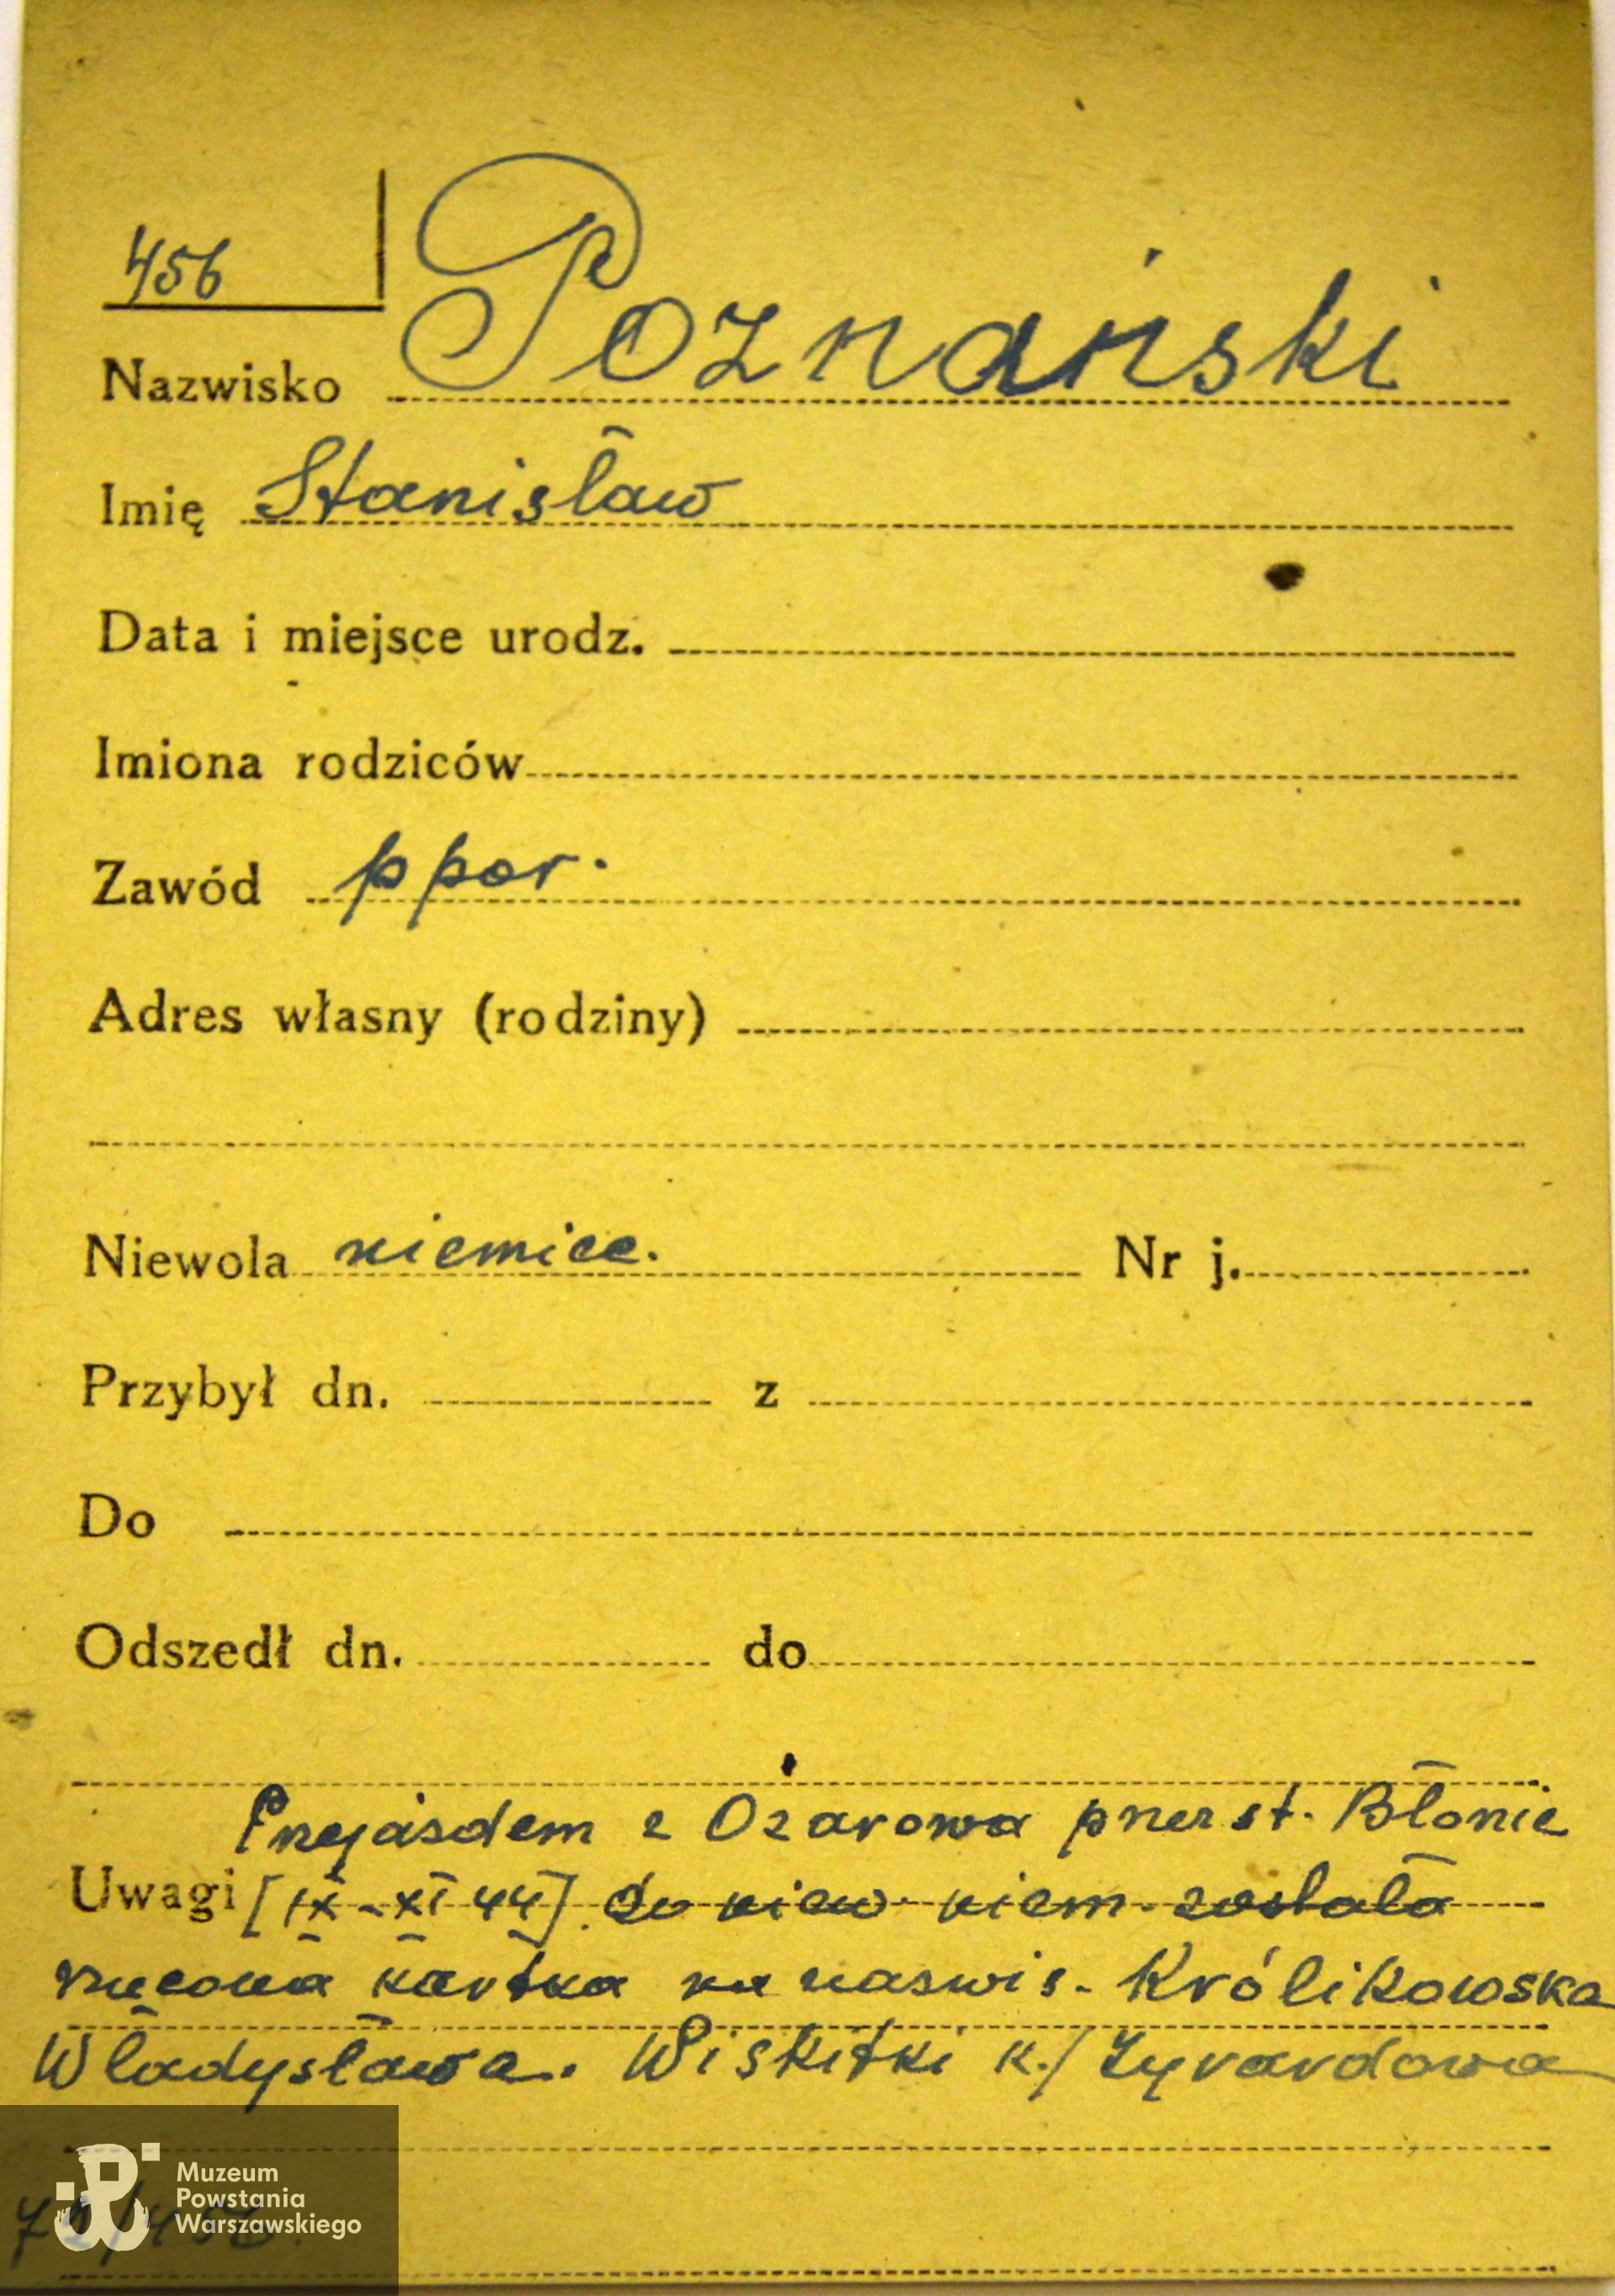 456
Poznański
Nazwisko
Imię Stanisław
Data i miejsce urodz.
Imiona rodziców
Zawód ppor.
Adres własny (rodziny)
Niewola niemiec. Nr j.
Przybył dn. z
Do
Odszedł dn. do
Przejazdem z Ożarowa przez st. Błonie
Uwagi [IX-XI 44] do niew. niem. została
rzucona kartka na nazwis. Królikowska
Władysława. Wiskitki k./Żyrardowa
Muzeum
Powstania
Warszawskiego